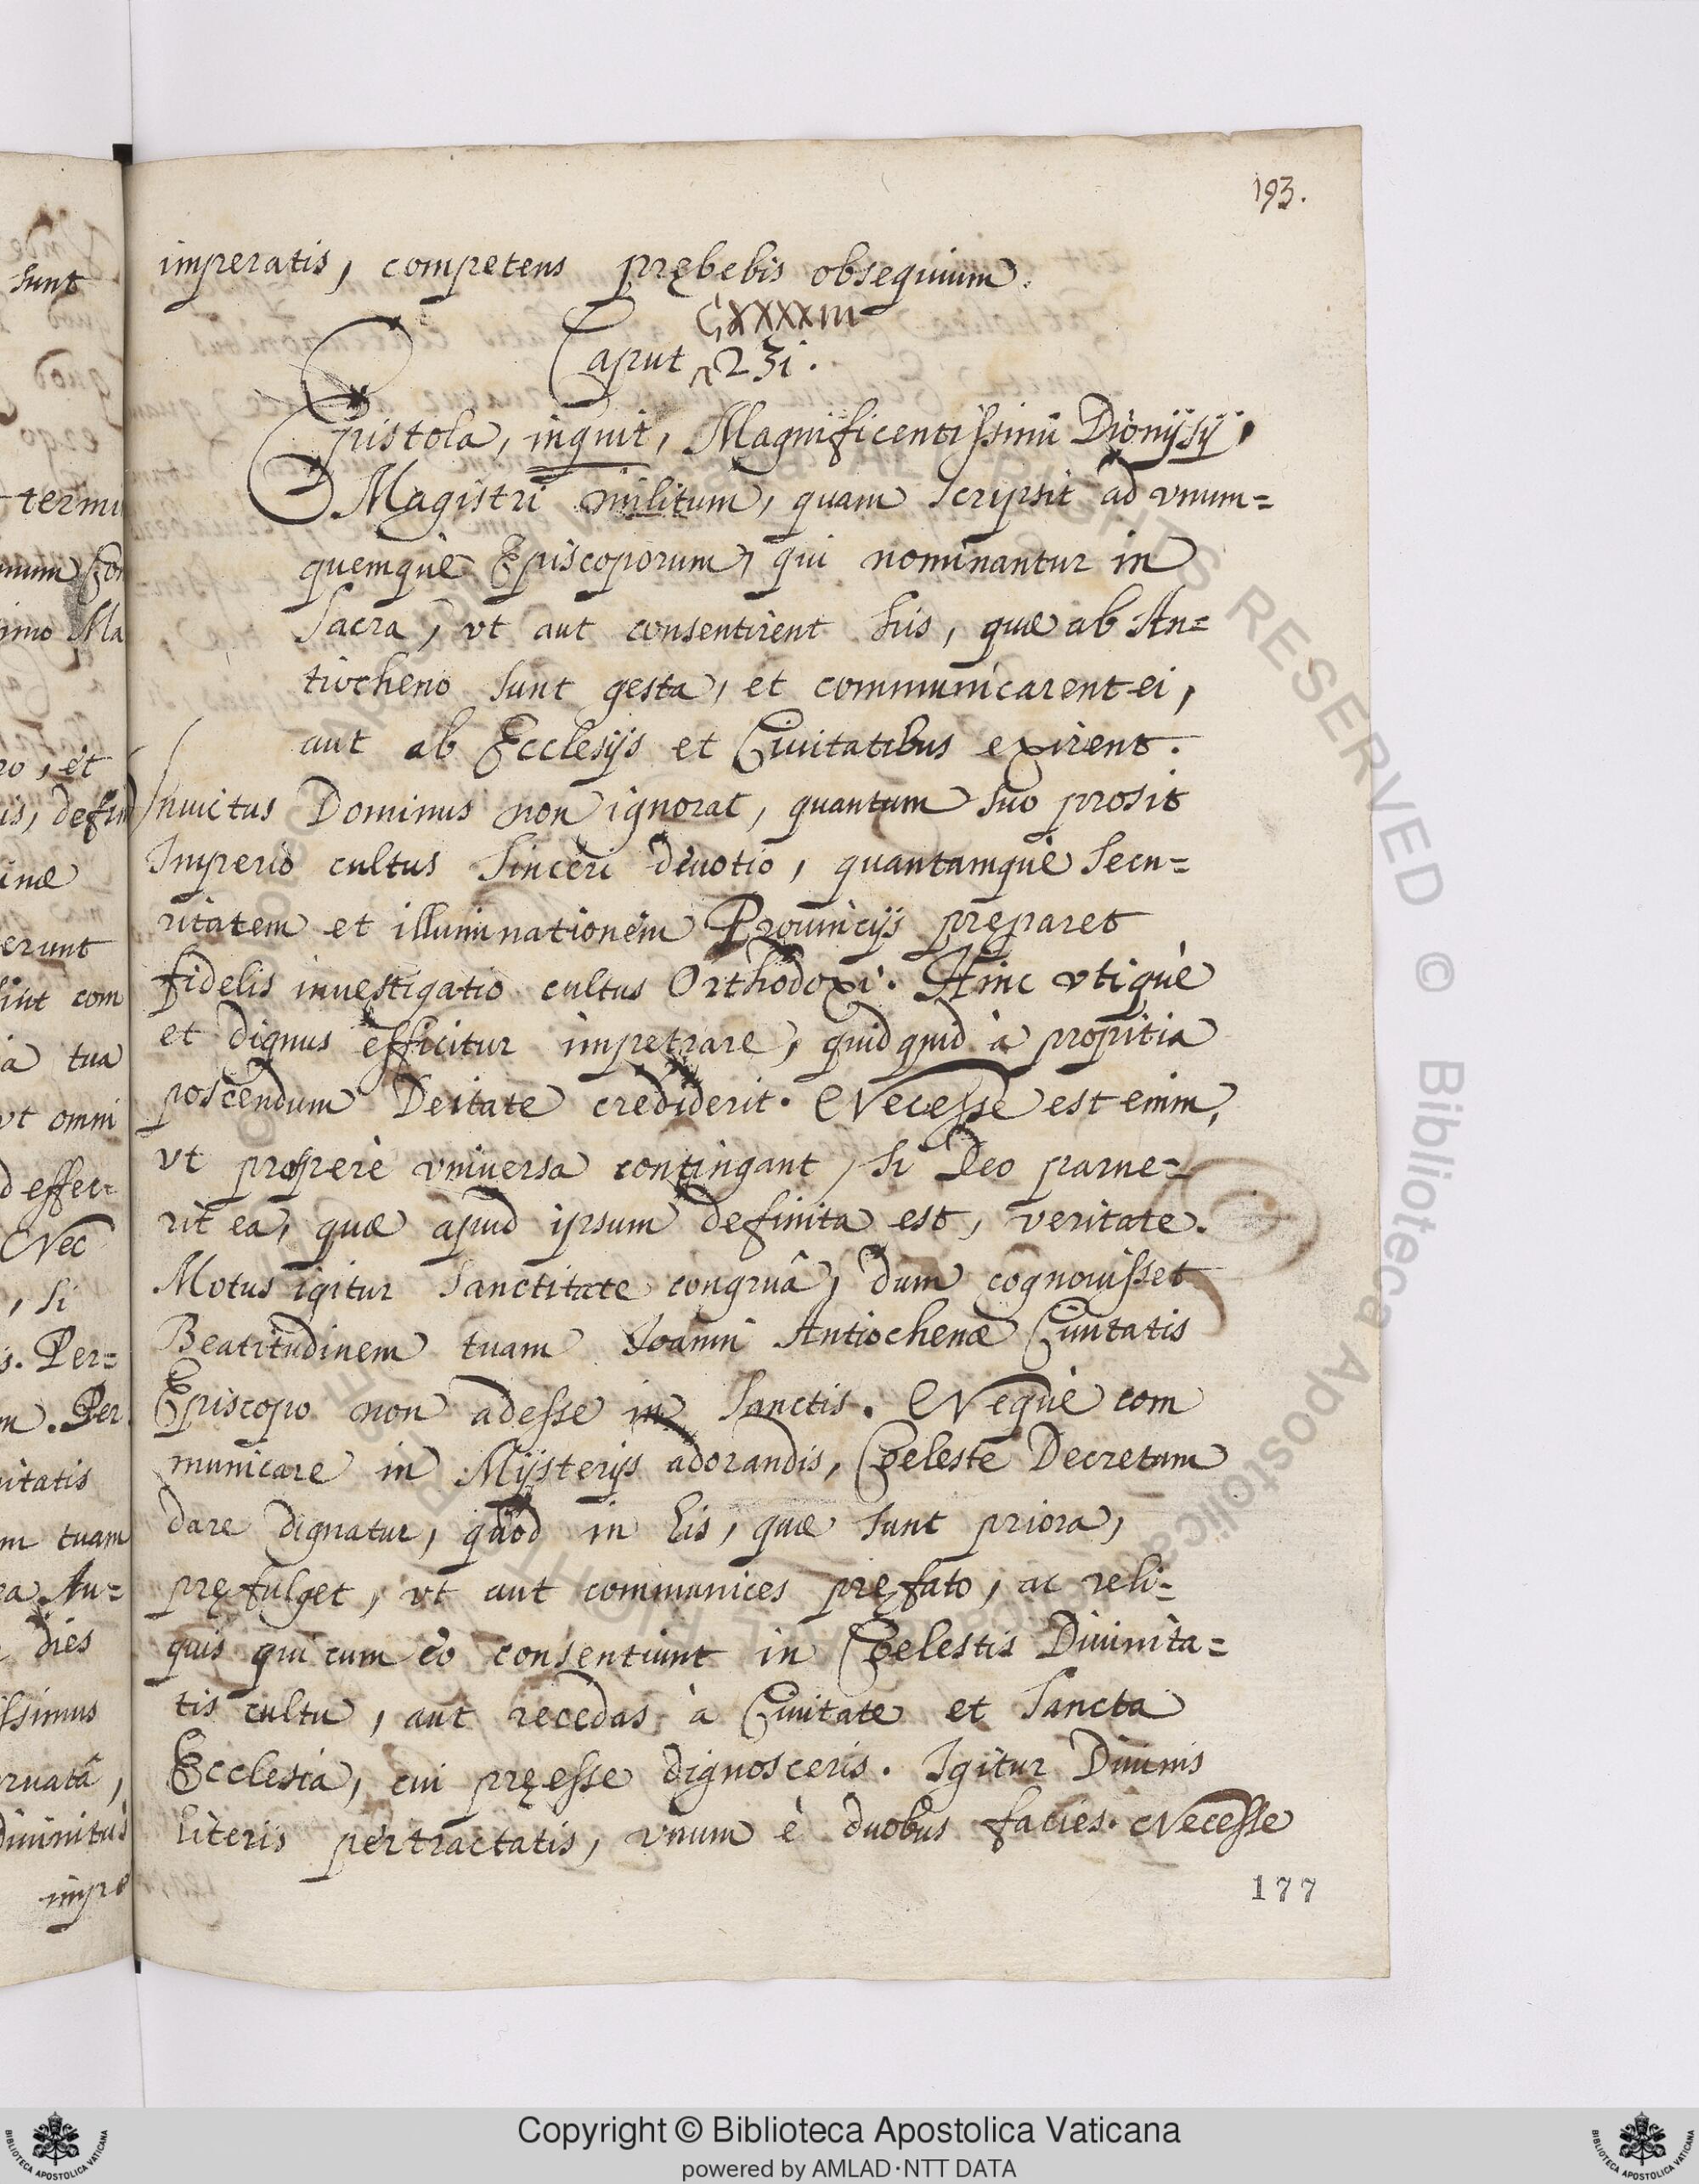 193.
imperatis, competens prębebis obsequium.
CXXXXIII
Caput 231.
Epistola, inquit, Magnificentissimi Dionijsij,
Magistri militum, quam scripsit ad vnum=
quemquè Episcoporum, qui nominantur in
Sacra, vt aut consentirent his, quæ ab An=
tiocheno sunt gesta, et communicarent ei,
aut ab Ecclesijs et Ciuitatibus exirent.
Inuictus Dominus non ignorat, quantum suo prosit
Imperio cultus sinceri deuotio, quantamquè secu=
ritatem et illuminationem Prouincijs pręparet
fidelis inuestigatio cultus Orthodoxi. Hinc vtiquè
et dignus efficitur impetrare, quidquid à propitia
poscendum Deitate crediderit. Necesse est enim,
vt prosperè vniuersa contingant, si Deo parue=
rit ea, quæ apud ipsum definita est, veritate.
Motus igitur sanctitate congruâ, dum cognouisset
Beatitudinem tuam Ioanni Antiochenæ Ciuitatis
Episcopo non adesse in sanctis. Nequè com
municare in Mijsterijs adorandis, Cœleste Decretum
dare dignatur, quod in his, quæ sunt priora,
pręfulget, vt aut communices pręfato, ac reli=
quis qui cum eo consentiunt in Cœlestis Diuinita=
tis cultu, aut recedas à Ciuitate et Sancta
Ecclesia, cui pręesse dignosceris. Igitur Diuinis
literis pertractatis, vnum è duobus facies. Necesse
177
sunt
termi
imo Ma
ro, et
is, defin
inæ
erunt
sint com
ia tua
vt omni
d effec=
Nec
, si
s. Per=
m. Per
uitatis
m tuam
ea Au=
dies
ssimus
ruatâ,
diuinitùs
impe
© Biblioteca Apostolica Vaticana ALL RIGHTS RESERVED
Copyright © Biblioteca Apostolica Vaticana
powered by AMLAD·NTT DATA
BIBLIOTECA APOSTOLICA VATICANA
BIBLIOTECA APOSTOLICA VATICANA